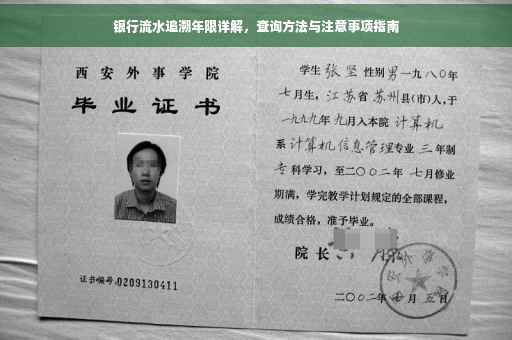 银行流水追溯年限详解，查询方法与注意事项指南
西安外事学院
毕业证书
证书编号:0209130411
学生 张坚 性别 男 一九八〇年
七月生，江苏省 苏州 县(市)人,于
一九九九年 九月入本院 计算机
系 计算机信息管理专业 三 年制
专 科学习，至二〇〇二年 七月修业
期满，学完教学计划规定的全部课程，
成绩合格，准予毕业。
院长
二〇〇二年 七 月 五 日